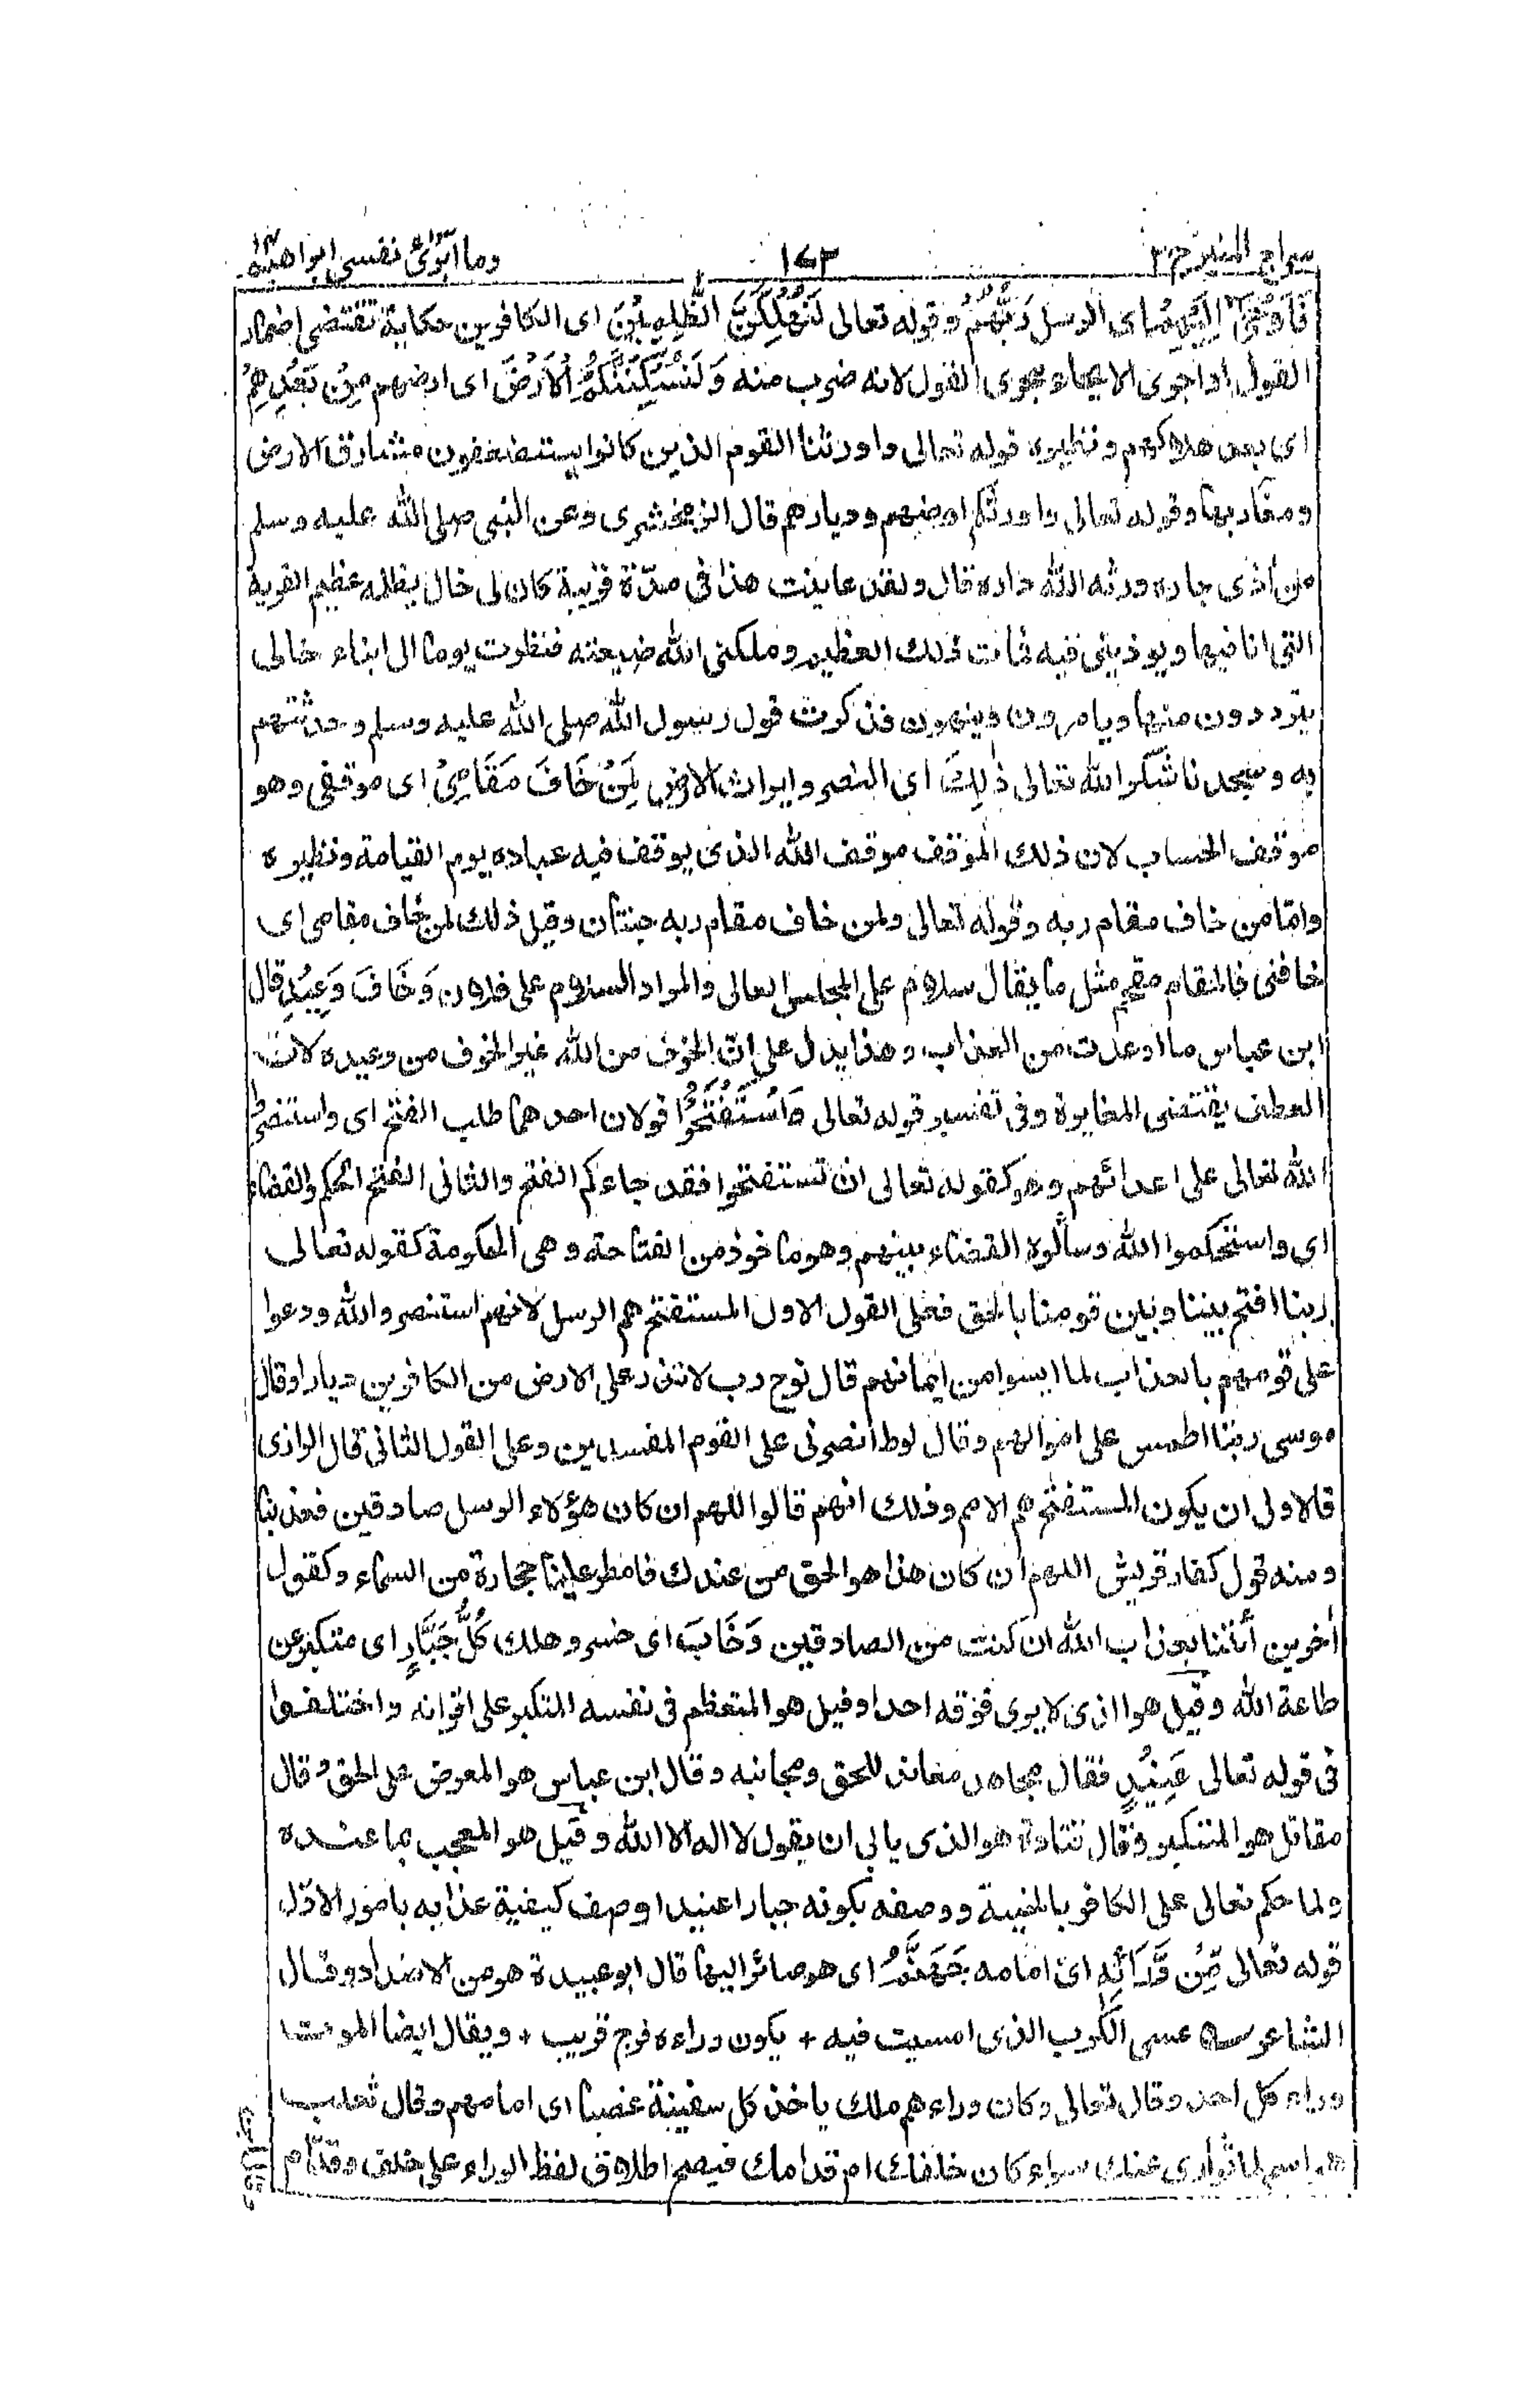 سراج المنير ج ٢
١٤٣
وما ابرئ نفسى ابراهيم ١٤
فَأَوْحَىٰ إِلَيْهِمْ اى الرسل رَبُّهُمْ وقوله تعالى لَنُهْلِكَنَّ الظّٰلِمِيْنَ اى الكافرين حكاية تقتضى اضمار
القول او اجرى الايحاء مجرى القول لانه ضرب منه وَلَنُسْكِنَنَّكُمُ الْاَرْضَ اى ارضهم مِنْ بَعْدِهِمْ
اى بعد هلاكهم ونظيره قوله تعالى واورثنا القوم الذين كانوا يستضعفون مشارق الارض
ومغاربها وقوله تعالى واورثكم ارضهم وديارهم قال الزمخشرى وعن النبى صلى الله عليه وسلم
من اذى جاره ورثه الله داره قال ولقد عاينت هذا فى مدّة قريبة كان لى خال يظلمه عظيم القرية
التى انا فيها ويوذينى فيه فمات ذلك العظيم وملكنى الله ضيعته فنظرت يوما ال ابناء خالى
يترددون منها ويامرون وينهون فذكرت قول رسول الله صلى الله عليه وسلم وحدثتهم
به وسجدنا شكرا لله تعالى ذٰلِكَ اى النصر وايراث الارض لِمَنْ خَافَ مَقَامِىْ اى موقفى وهو
موقف الحساب لان ذلك الموقف موقف الله الذى يوقف فيه عباده يوم القيامة ونظيره
وامّا من خاف مقام ربه وقوله تعالى ولمن خاف مقام ربه جنتان وقيل ذلك لمن خاف مقامى اى
خافنى فالمقام مقحم مثل ما يقال سلام على المجلس العالى والمراد السلام على فلان وَخَافَ وَعِيْدِ قال
ابن عباس ما اوعدت من العذاب وهذا يدل على انّ الخوف من الله غير الخوف من وعيده لانّ
العطف يقتضى المغايرة وفى تفسير قوله تعالى وَاسْتَفْتَحُوْا قولان احدهما طلب الفتح اى واستنصروا
الله تعالى على اعدائهم وهو كقوله تعالى ان تستفتحوا فقد جاءكم الفتح والثانى الفتح الحكم والقضاء
اى واستحكموا الله وسألوه القضاء بينهم وهو ماخوذ من الفتاحة وهى الحكومة كقوله تعالى
ربنا افتح بيننا وبين قومنا بالحق فعلى القول الاول المستفتح هم الرسل لانهم استنصروا الله ودعوا
على قومهم بالعذاب لما ايسوا من ايمانهم قال نوح رب لا تذر على الارض من الكافرين ديارا وقال
موسى ربنا اطمس على اموالهم وقال لوط انصرنى على القوم المفسدين وعلى القول الثانى قال الرازى
فالاولى ان يكون المستفتح هم الامم وذلك انهم قالوا اللهم ان كان هؤلاء الرسل صادقين فعذبنا
ومنه قول كفار قريش اللهم ان كان هذا هو الحق من عندك فامطر علينا حجارة من السماء وكقول
اٰخرين أئتنا بعذاب الله ان كنت من الصادقين وَخَابَ اى خسر وهلك كُلُّ جَبَّارٍ اى متكبر عن
طاعة الله وقيل هو الذى لا يرى فوقه احدا وقيل هو المتعظم فى نفسه المتكبر على اقرانه واختلفوا
فى قوله تعالى عَنِيْدٍ فقال مجاهد معاند للحق ومجانبه وقال ابن عباس هو المعرض عن الحق وقال
مقاتل هو المتكبر وقال قتادة هو الذى يابى ان يقول لا اله الا الله وقيل هو المعجب بما عنده
ولما حكم تعالى على الكافر بالخيبة ووصفه بكونه جبارا عنيدا وصف كيفية عذابه بامور الاوّل
قوله تعالى مِنْ وَّرَائِهِ اى امامه جَهَنَّمُ اى هو صائر اليها قال ابو عبيدة هو من الاضداد وقال
الشاعر سه عسى الكرب الذى امسيت فيه + يكون وراءه فرج قريب + ويقال ايضا الموت
وراء كل احد وقال تعالى وكان وراءهم ملك ياخذ كل سفينة غصبا اى امامهم وقال ثعلب
هو اسم لما توارى عنك سواء كان خلفك ام قدامك فيصح اطلاق لفظ الوراء على خلف وقدّام